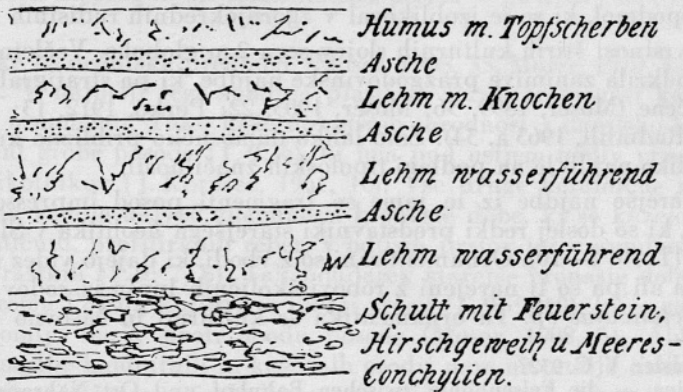 Humus m. Topfscherben
Asche
Lehm m. Knochen
Asche
Lehm wasserführend
Asche
Lehm wasserführend
Schutt mit Feuerstein,
Hirschgeweih u. Meeres-
Conchylien.